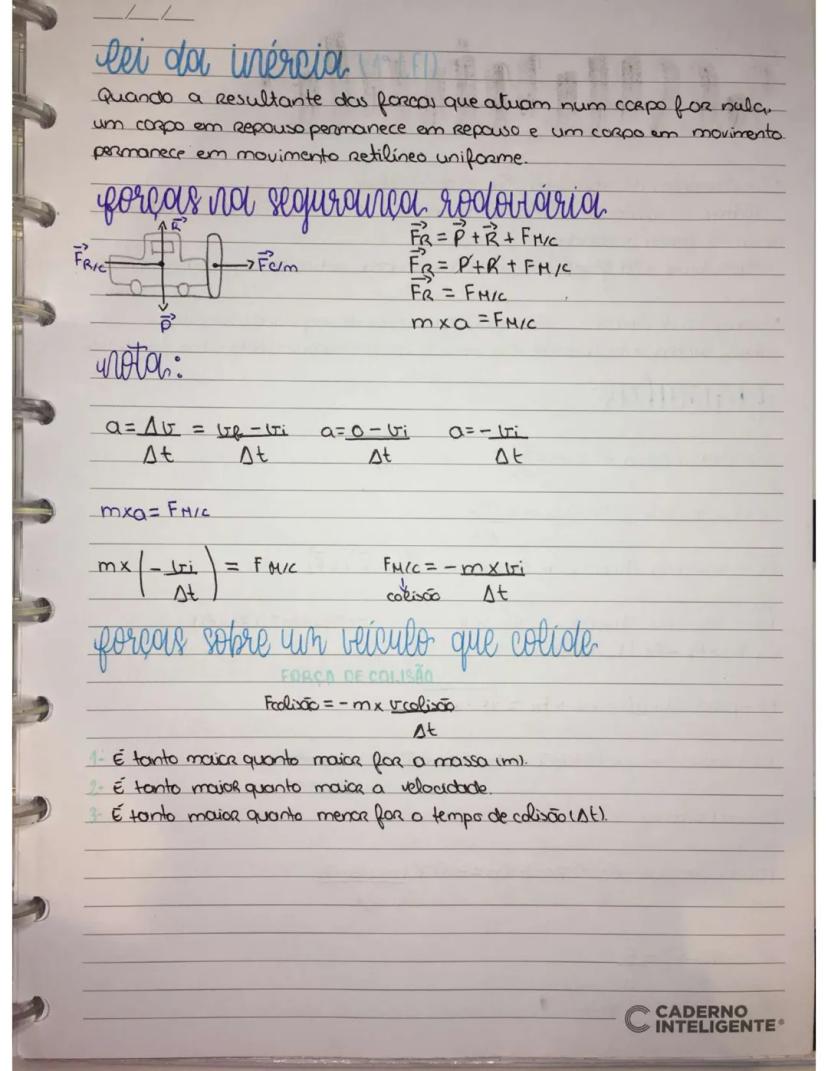 lei da inércia
Quando a resultante das forças que atuam num corpo for nula,
um corpo em repouso permanece em repouso e um corpo em movimento
permanece em movimento retilíneo uniforme.
forças na segurança rodoviária
R→
F→R/C
F→c/m
P→
F→R = P→ + R→ + FM/C
F→R = P + R + FM/C
F→R = FM/C
m x a = FM/C
nota:
a = Δv/Δt = vf - vi/Δt a = 0 - vi/Δt a = - vi/Δt
m x a = FM/C
m x (- vi/Δt) = FM/C FM/C = - m x vi/Δt
colisão
forças sobre um veículo que colide
FORÇA DE COLISÃO
Fcolisão = - m x vcolisão/Δt
1- É tanto maior quanto maior for a massa (m).
2- É tanto maior quanto maior a velocidade.
3- É tanto maior quanto menor for o tempo de colisão (Δt).
CADERNO
INTELIGENTE®